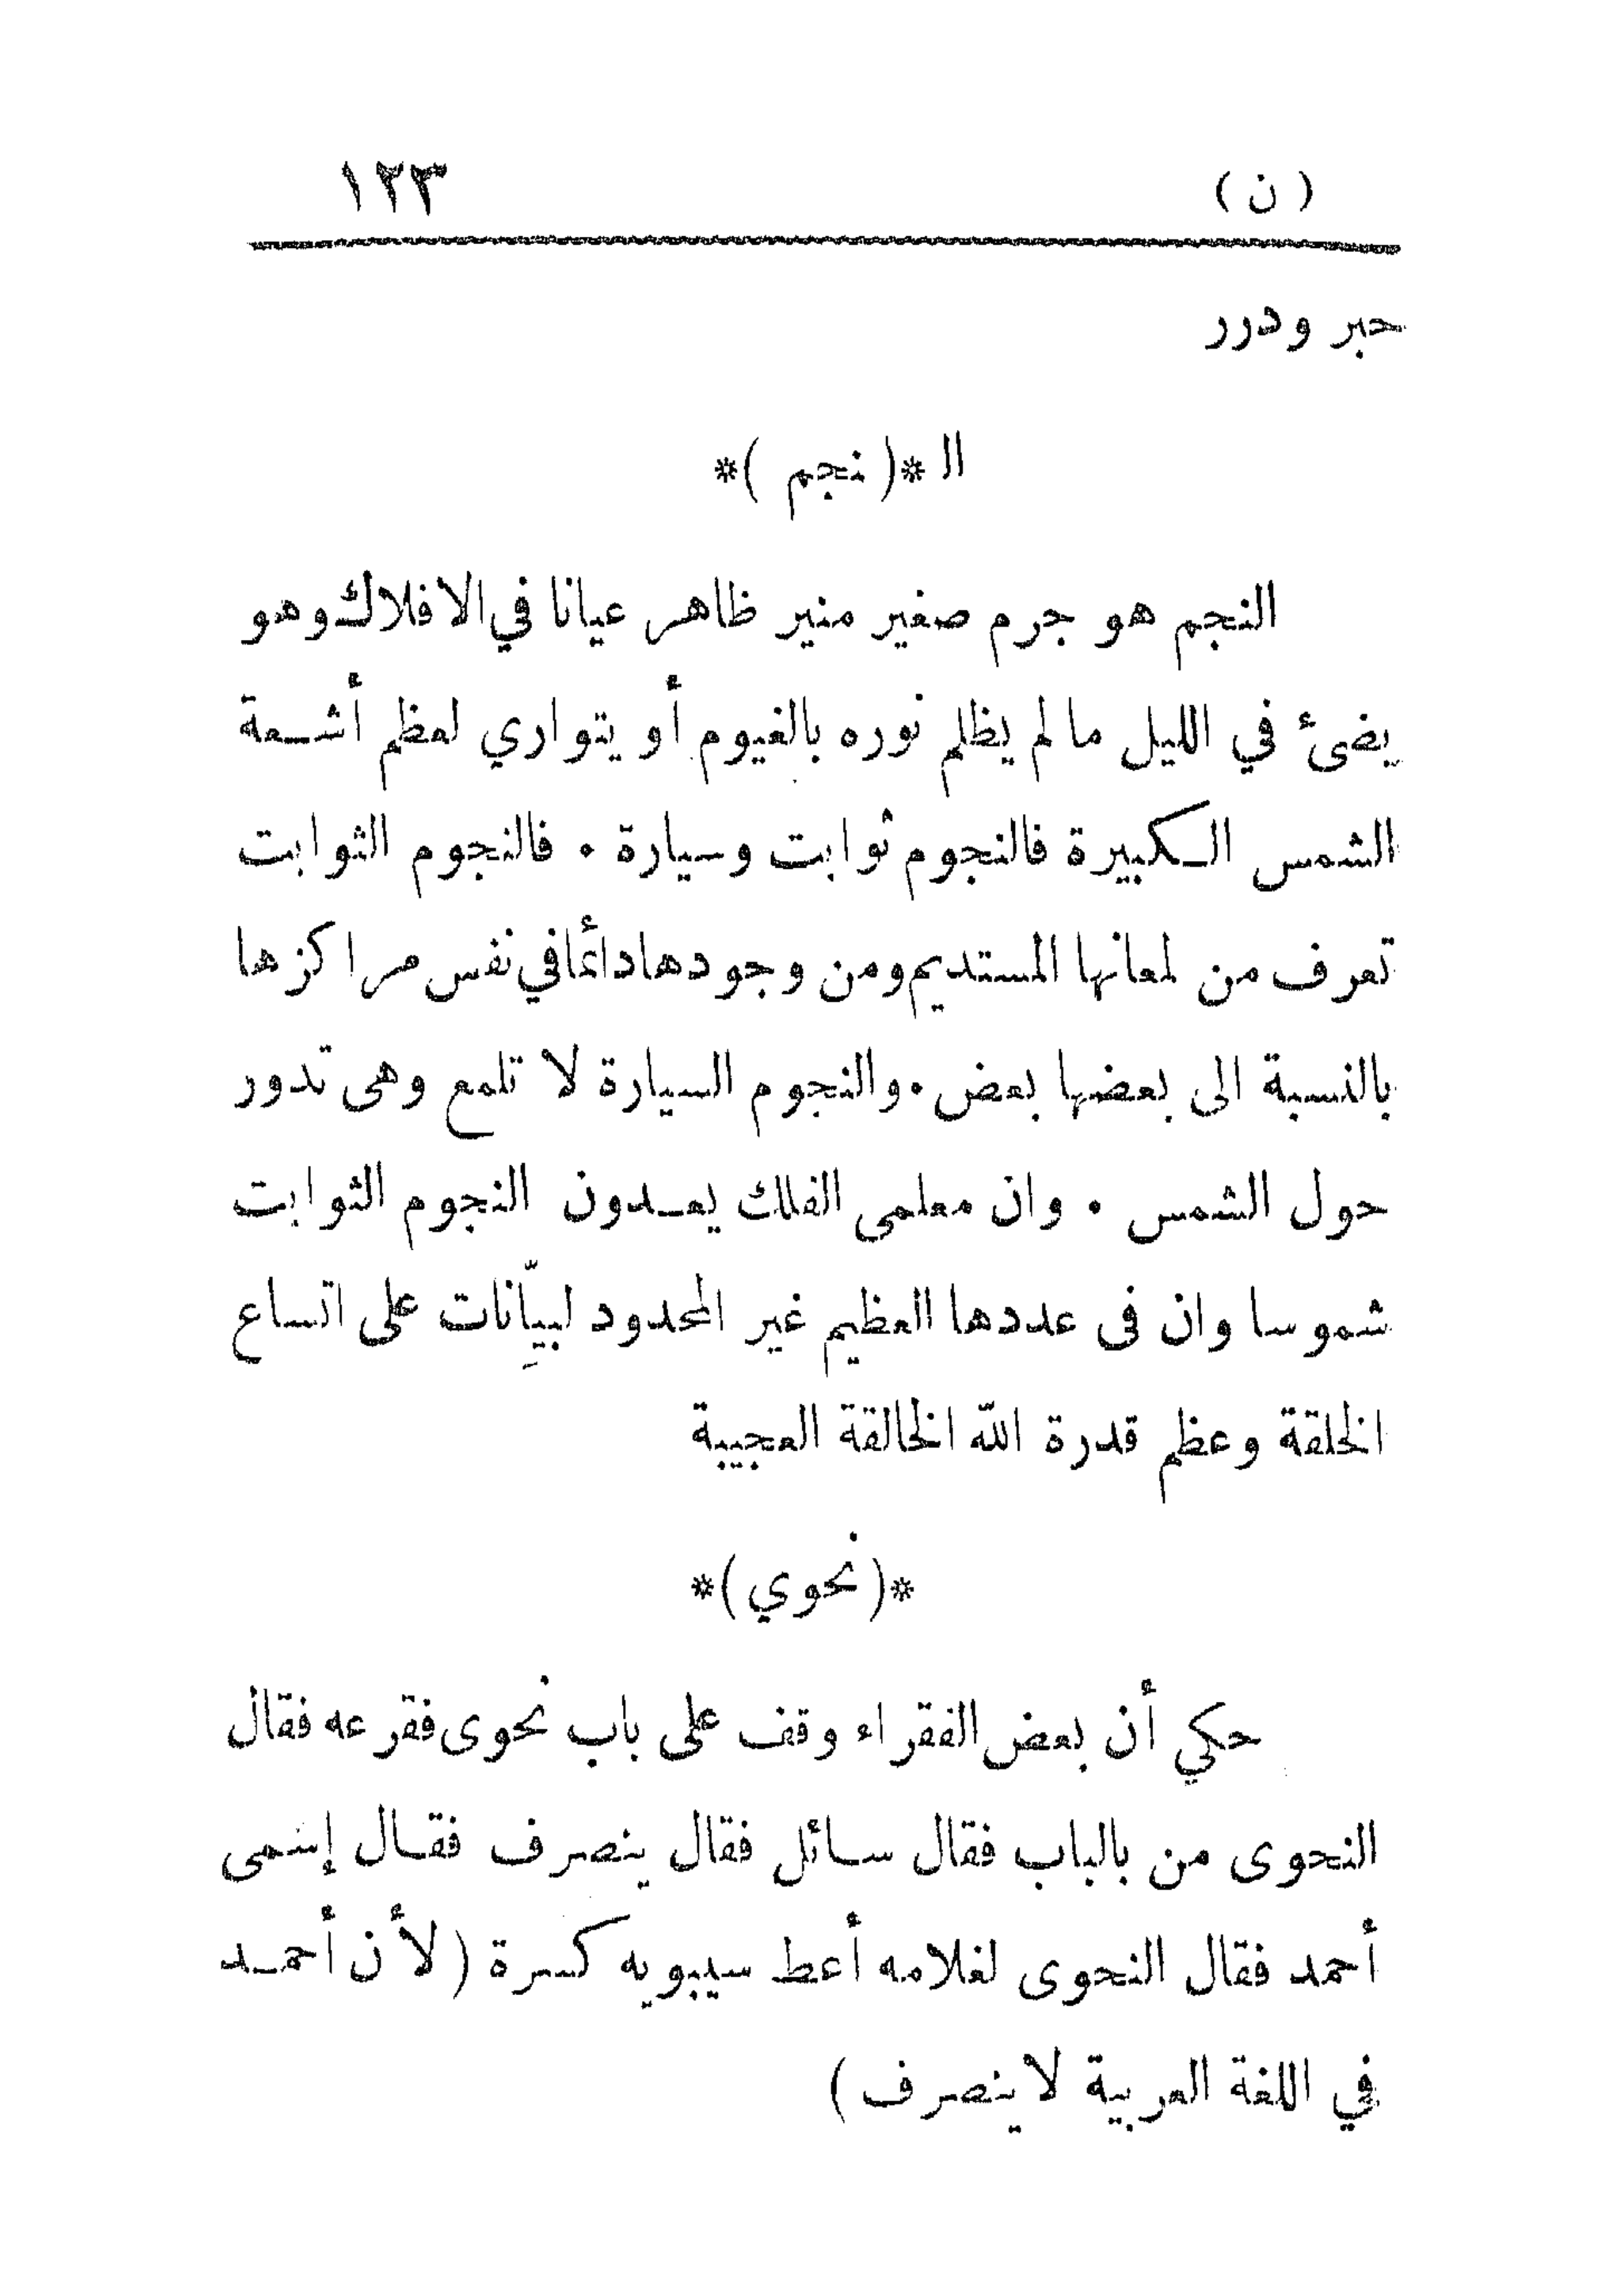 (ن) ١٢٣
حبر ودرر
الـ *( نجم )*
النجم هو جرم صغير منير ظاهر عيانا في الافلاك وهو
يضئ في الليل مالم يظلم نوره بالغيوم أو يتواري لعظم أشعة
الشمس الكبيرة فالنجوم ثوابت وسيارة . فالنجوم الثوابت
تعرف من لمعانها المستديم ومن وجودها دائما في نفس مراكزها
بالنسبة الى بعضها بعض . والنجوم السيارة لا تلمع وهى تدور
حول الشمس . وان معلمى الفلك يعدون النجوم الثوابت
شموسا وان فى عددها العظيم غير المحدود لبيِّانات على اتساع
الخلقة وعظم قدرة الله الخالقة العجيبة
*( نحوي )*
حكي أن بعض الفقراء وقف على باب نحوى فقرعه فقال
النحوى من بالباب فقال سائل فقال ينصرف فقال إسمى
أحمد فقال النحوى لغلامه أعط سيبويه كسرة ( لأن أحمد
في اللغة العربية لا ينصرف )